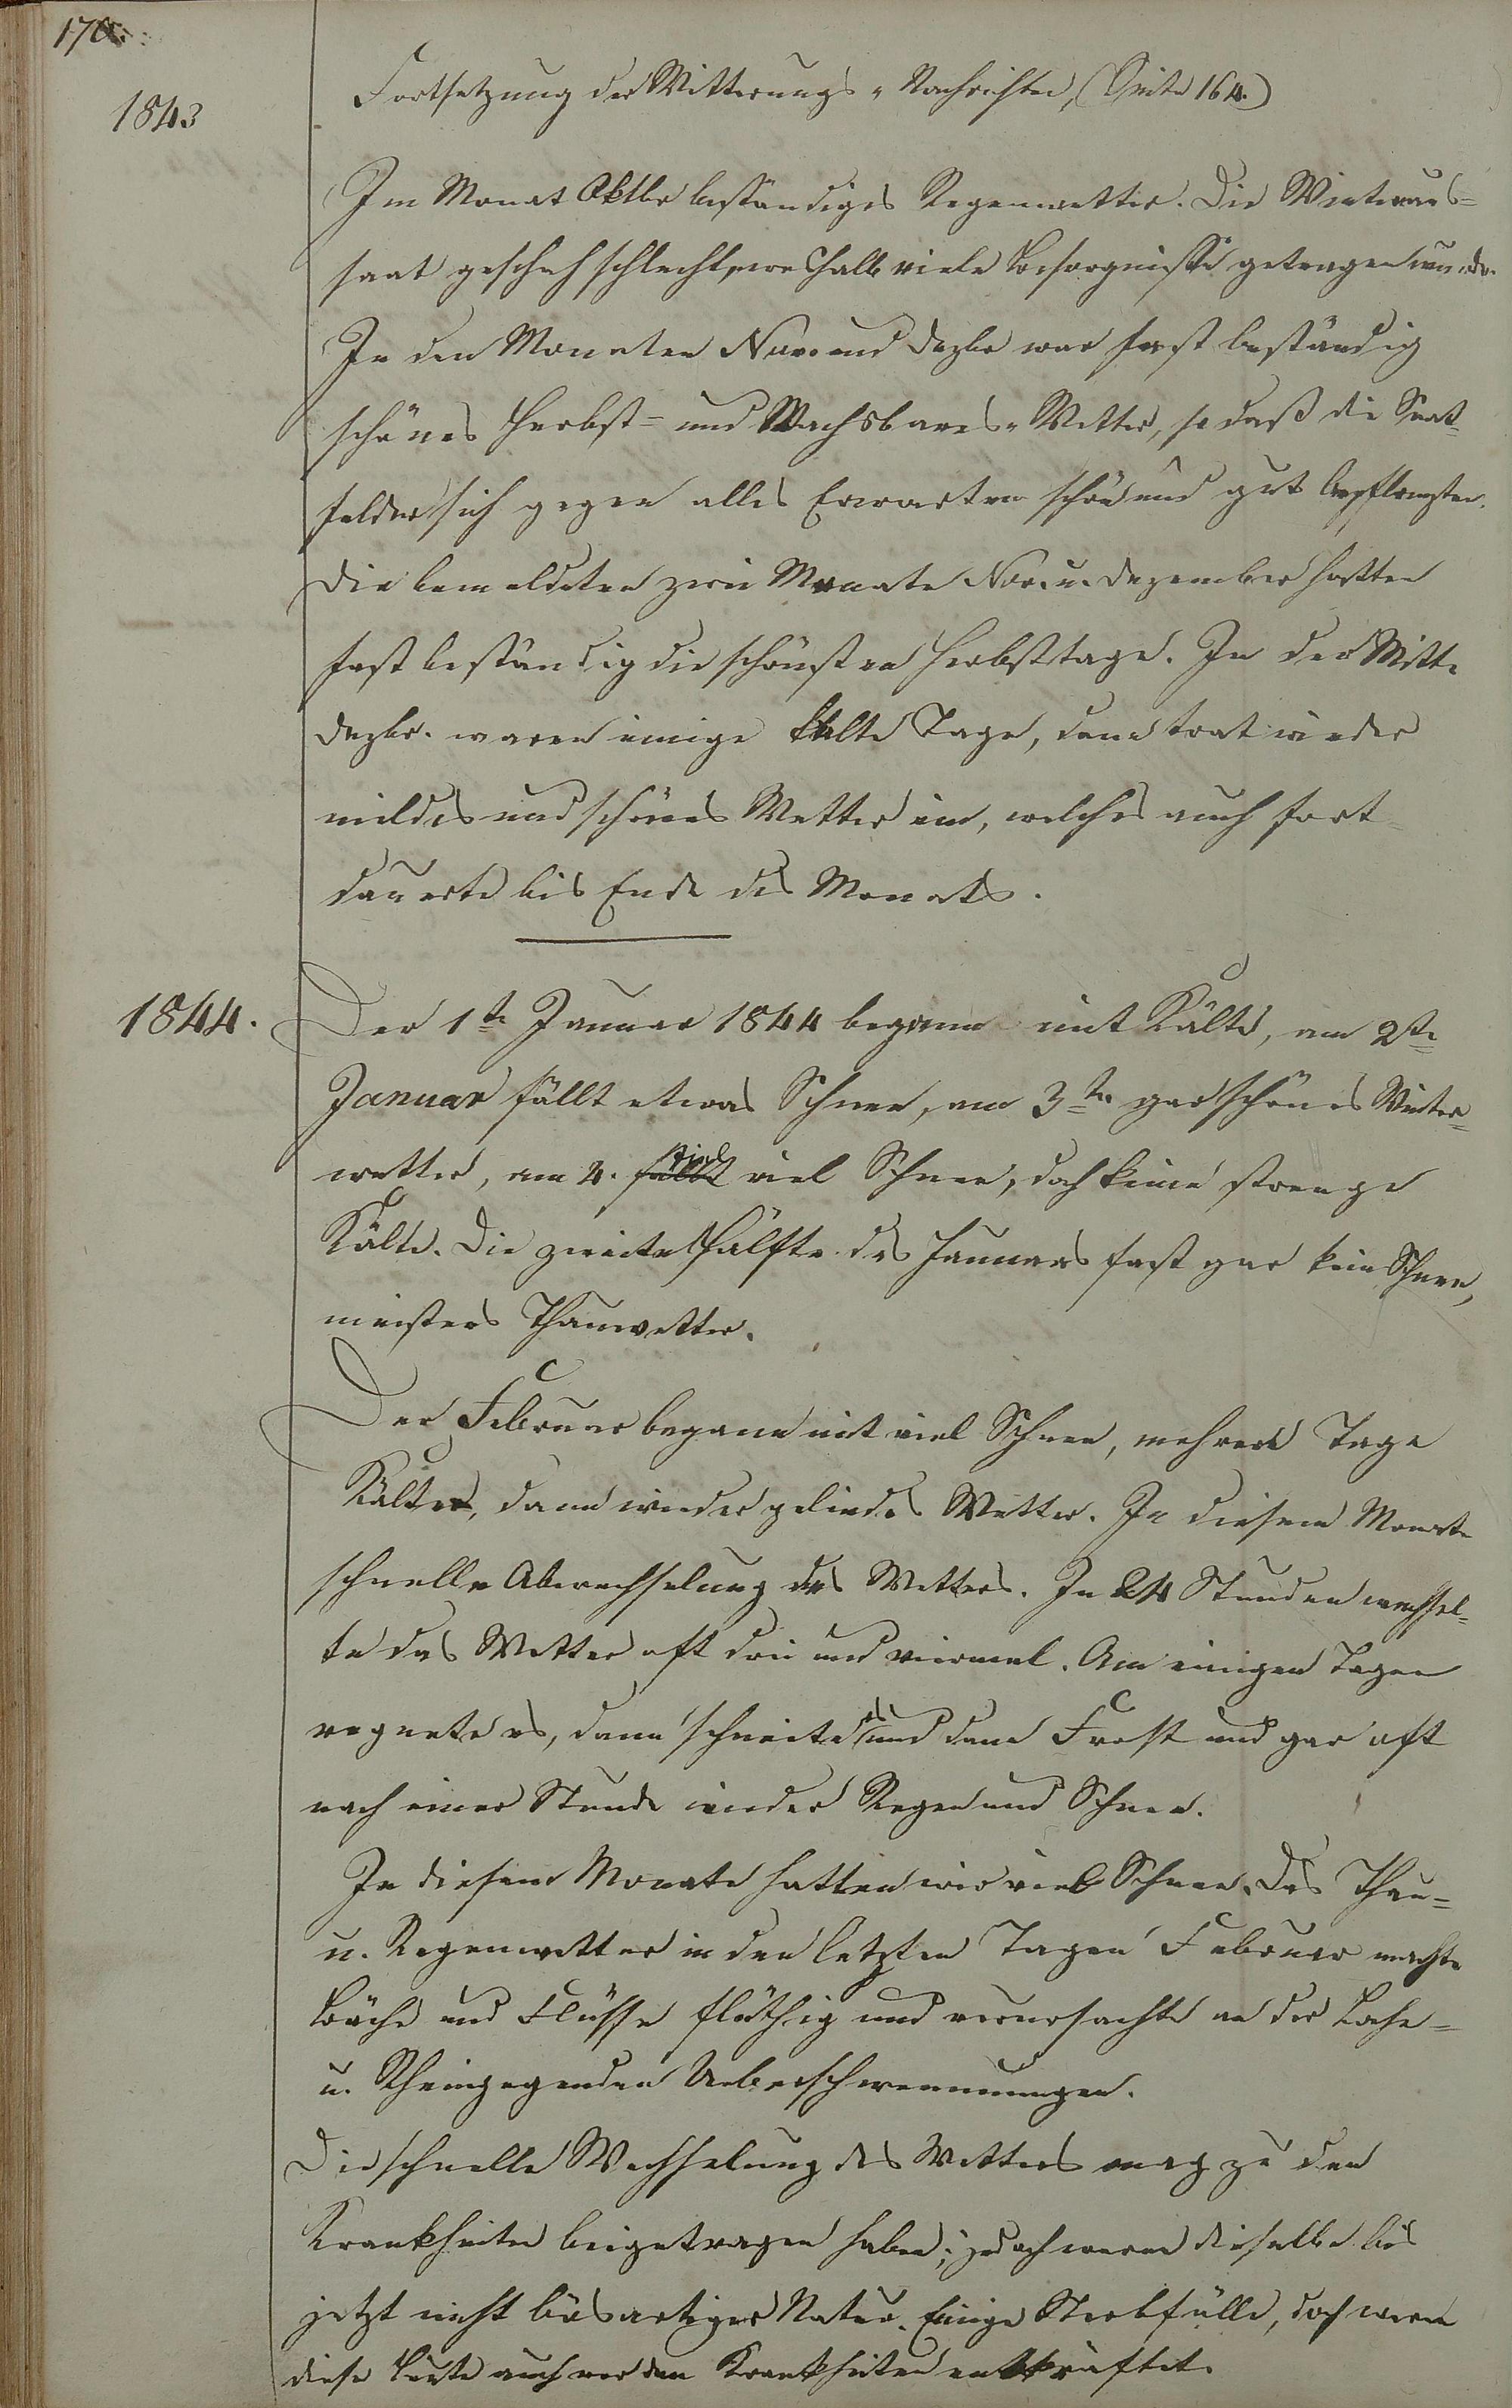 170.
1843
Fortsetzung der Witterungs-Nachrichten, (Seite 164.)
Im Monat Oktbr beständiges Regenwetter. Die Winteraus=
saat geschah schlecht, weshalb viele Besorgnisse getragen wurde.
In den Monaten Nov. und Dezbr war fast beständig
schönes Herbst= und Wachsbares-Wetter, so daß die Saat=
felder sich gegen alles Erwarten schön und gut bepflanzten.
Die bemeldeten zwei Monate Nov. u. Dezember hatten
fast beständig die schönsten Herbsttage. In der Mitte
Dezbr. waren einige kalte Tage, dann trat wieder
mildes und schönes Wetter ein, welches auch fort=
dauerte bis Ende des Monats.
1844.
Der 1te Januar 1844 begann mit Kälte, am 2te
Januar fällt etwas Schnee, am 3te gar schönes Winter=
wetter, am 4. fällt viel Schnee, doch keine strenge
Kälte. Die zweite Hälfte des Januars fast gar kein Schnee,
meistens Thauwetter.
Der Februar begann mit viel Schnee, mehrere Tage
Kälte, dann wieder gelindes Wetter. In diesem Monate
schnelle Abwechselung des Wetters. In 24 Stunden wechsel=
te das Wetter oft drei und viermal. An einigen Tagen
regnete es, dann schneite es und dann Frost und gar oft
nach einer Stunde wieder Regen und Schnee.
In diesem Monate hatten wir viel Schnee. Das Thau=
u. Regenwetter in den letzten Tagen Februar machte
Bäche und Flüsse fluthig und verursachte an der Lahn=
u. Rheingegenden Ueberschwemmungen.
Die schnelle Wechselung des Wetters mag zu den
Krankheiten beigetragen haben; jedoch waren dieselbe bis
jetzt nicht bösartiger Natur. Einige Sterbfälle, doch waren
diese Leute auch vor den Krankheiten entkräftet.